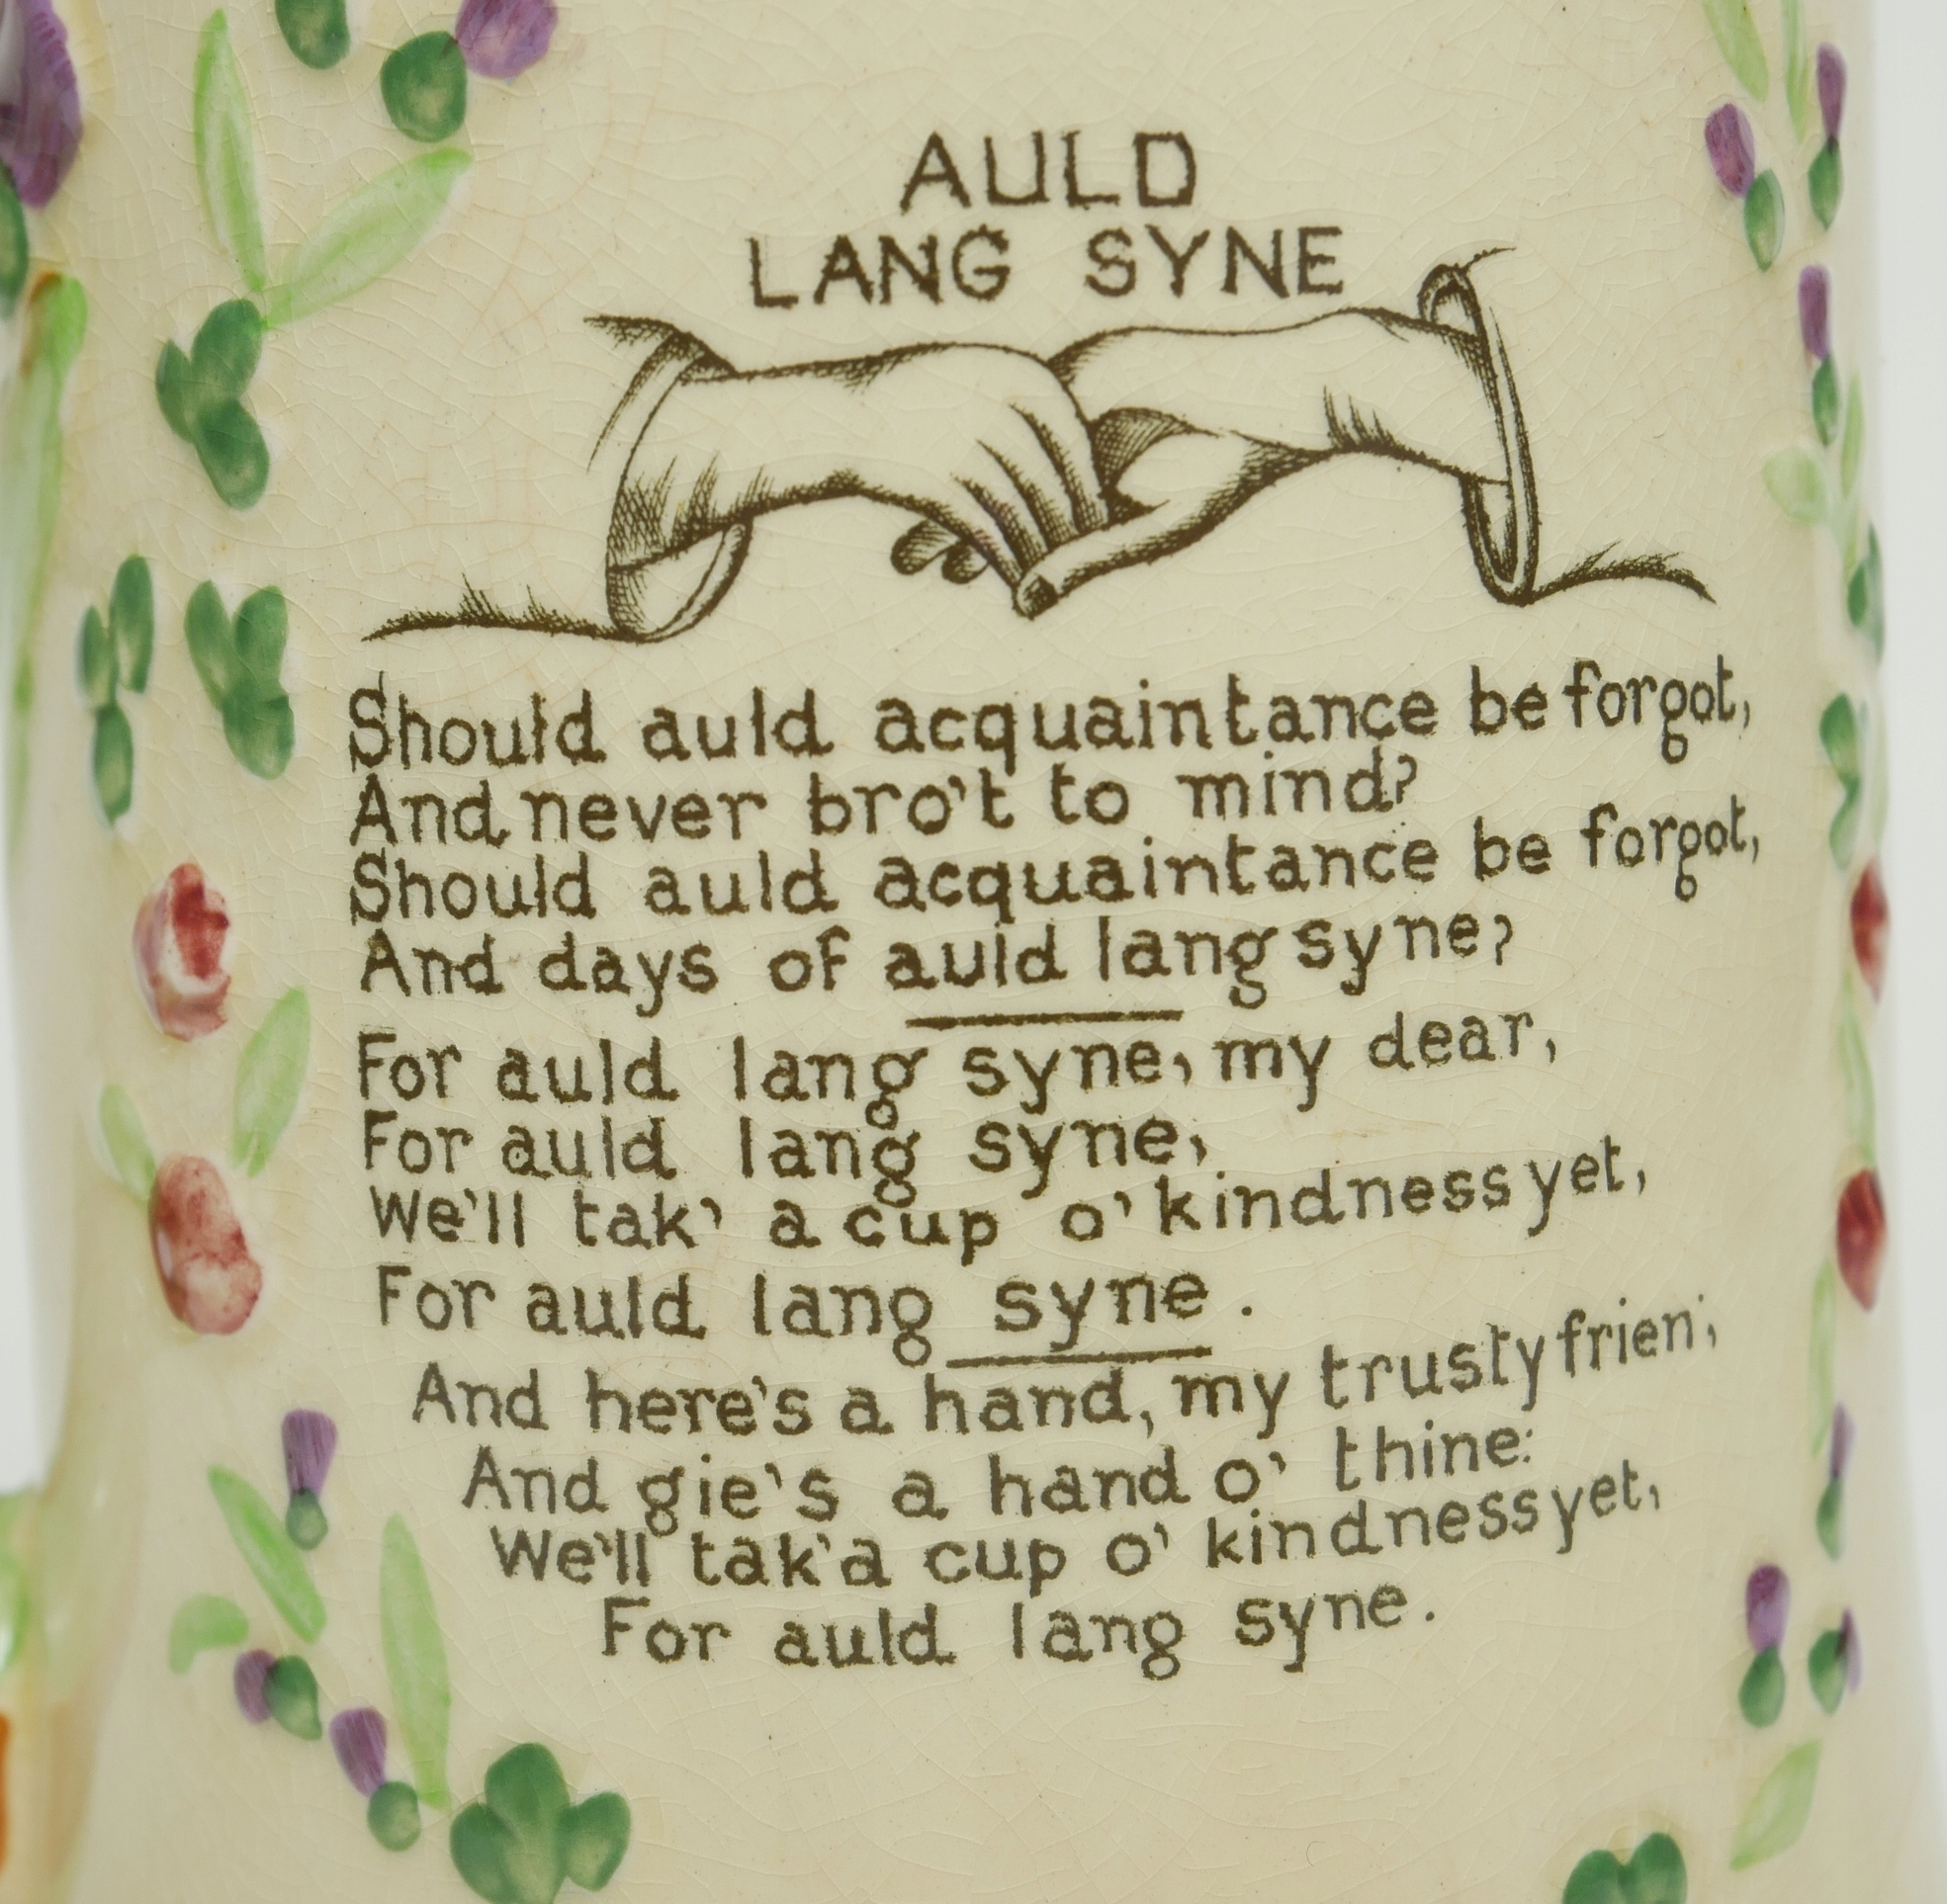 AULD
LANG SYNE
Should auld acquaintance be forgot,
And never bro't to mind?
Should auld acquaintance be forgot,
And days of auld lang syne?
For auld lang syne, my dear,
For auld lang syne,
We'll tak' a cup o' kindness yet,
For auld lang syne.
And here's a hand, my trusty frien',
And gie's a hand o' thine:
We'll tak' a cup o' kindness yet,
For auld lang syne.